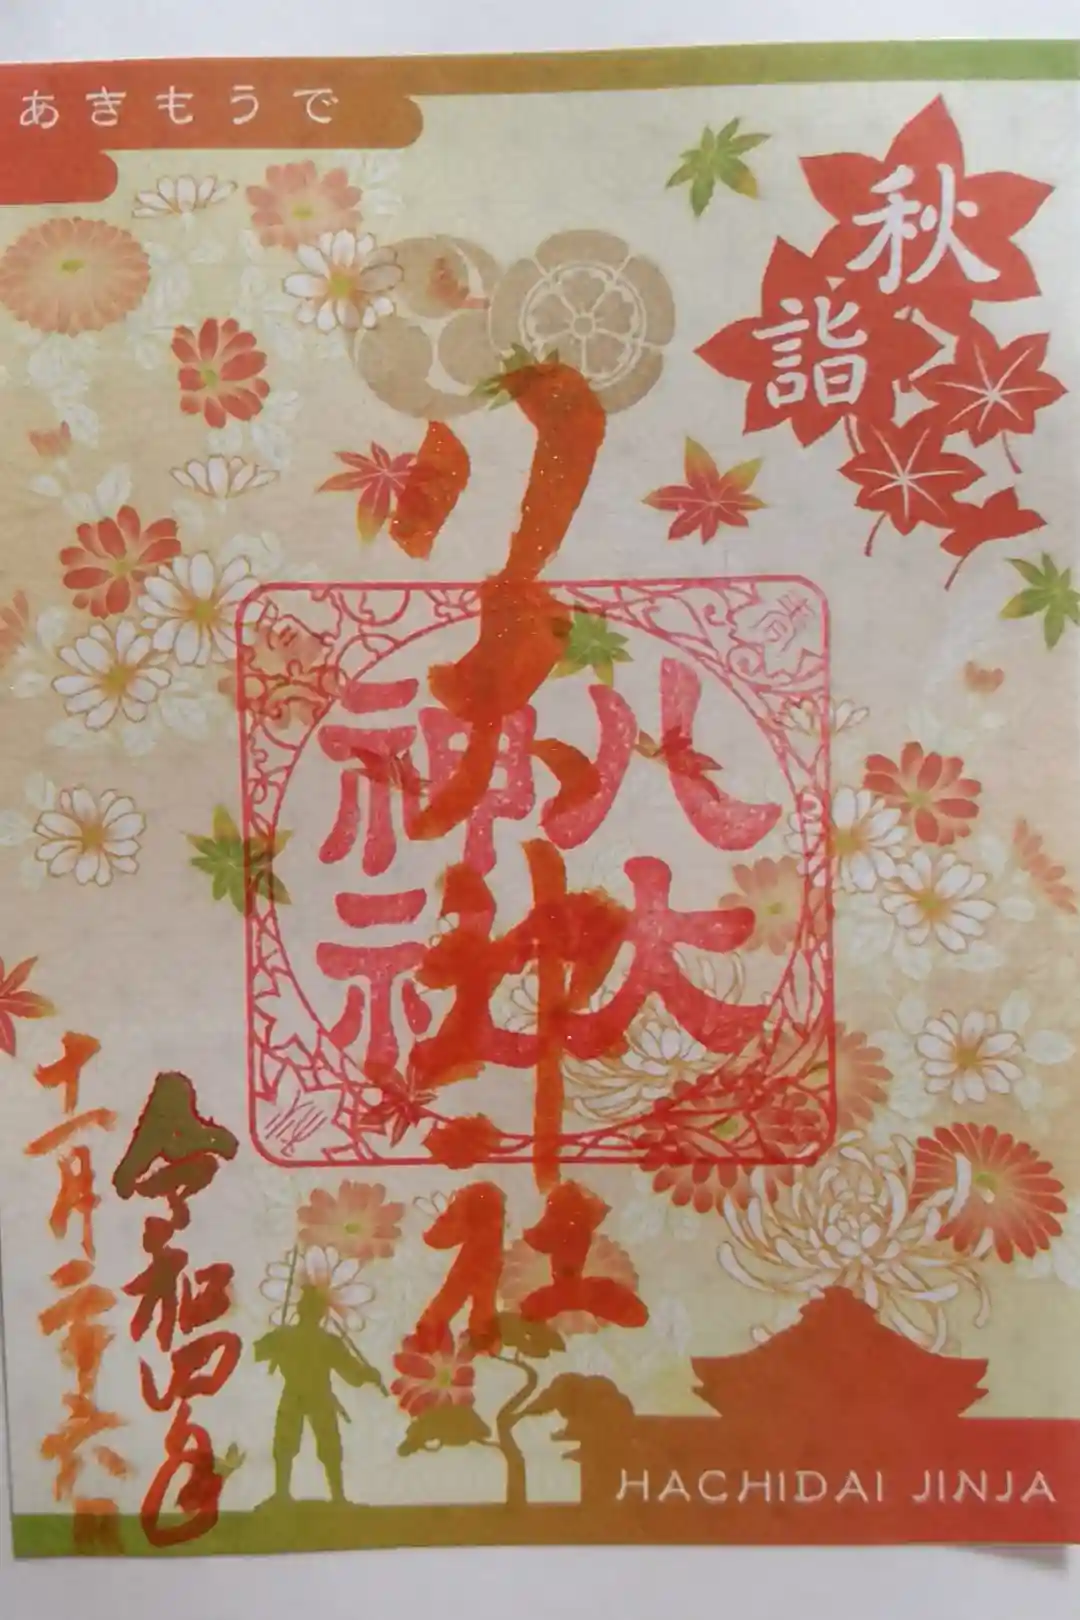 あきもうで
秋詣
八大神社
八大神社
令和四年
十一月二十六日
HACHIDAI JINJA